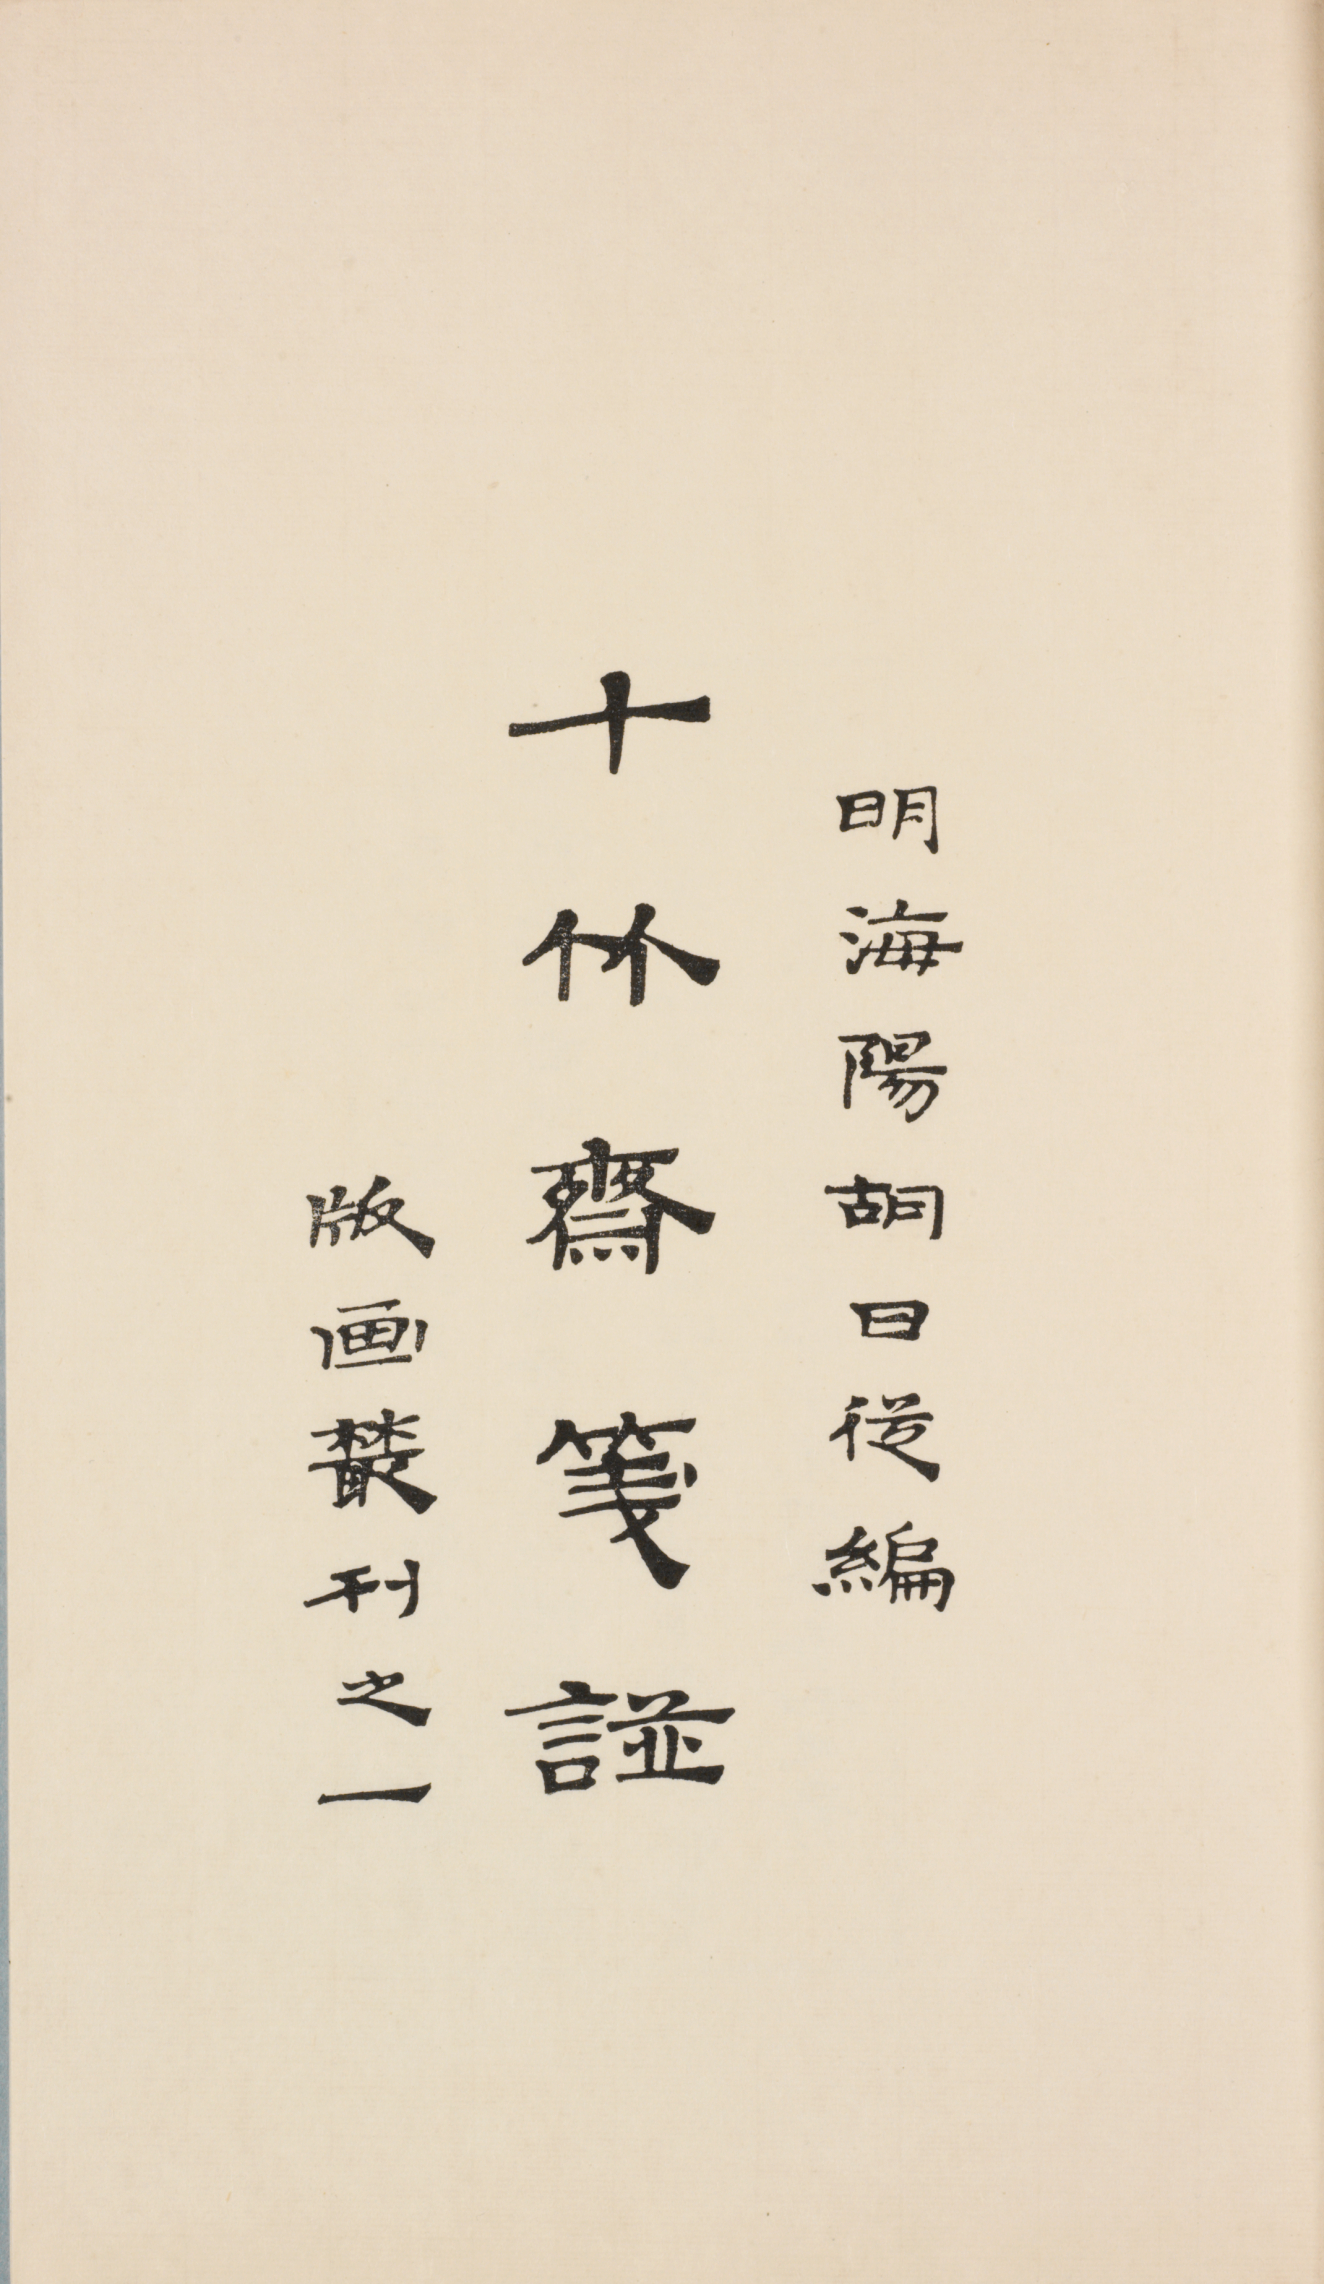 明海陽胡日從編
十竹齋箋譜
版画叢刊之一